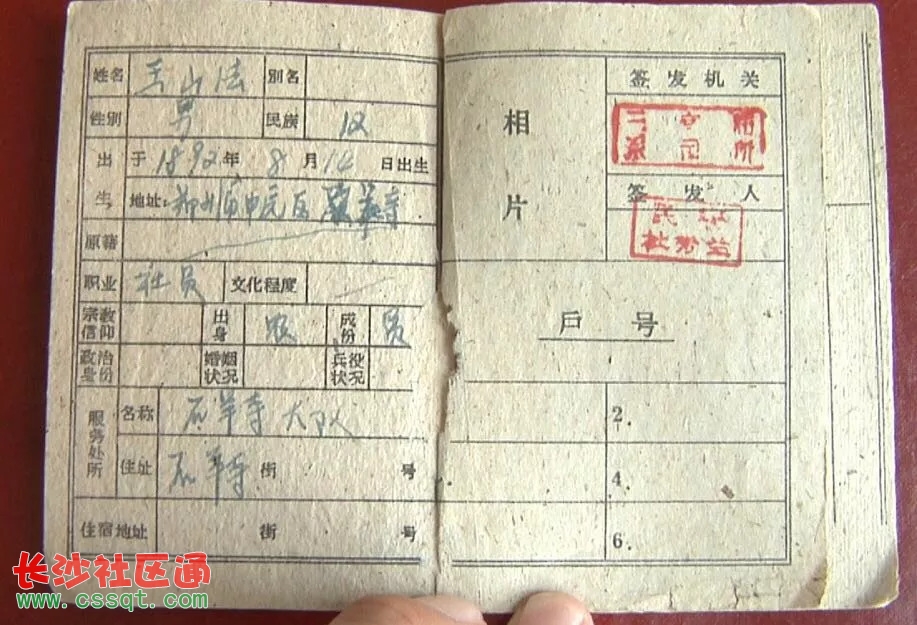 姓名 王山法 别名
性别 男 民族 汉
出生 于1892年8月14日出生
地址:郑州市中元区 寺
原籍
职业 社员 文化程度
宗教信仰 出身 农 成份 员
政治身份 婚姻状况 兵役状况
服务处所 名称 石羊寺大队
住址 石羊寺 街 号
住宿地址 街 号
相片
签发机关
签发人
户号
2.
4.
6.
长沙社区通
www.cssqt.com